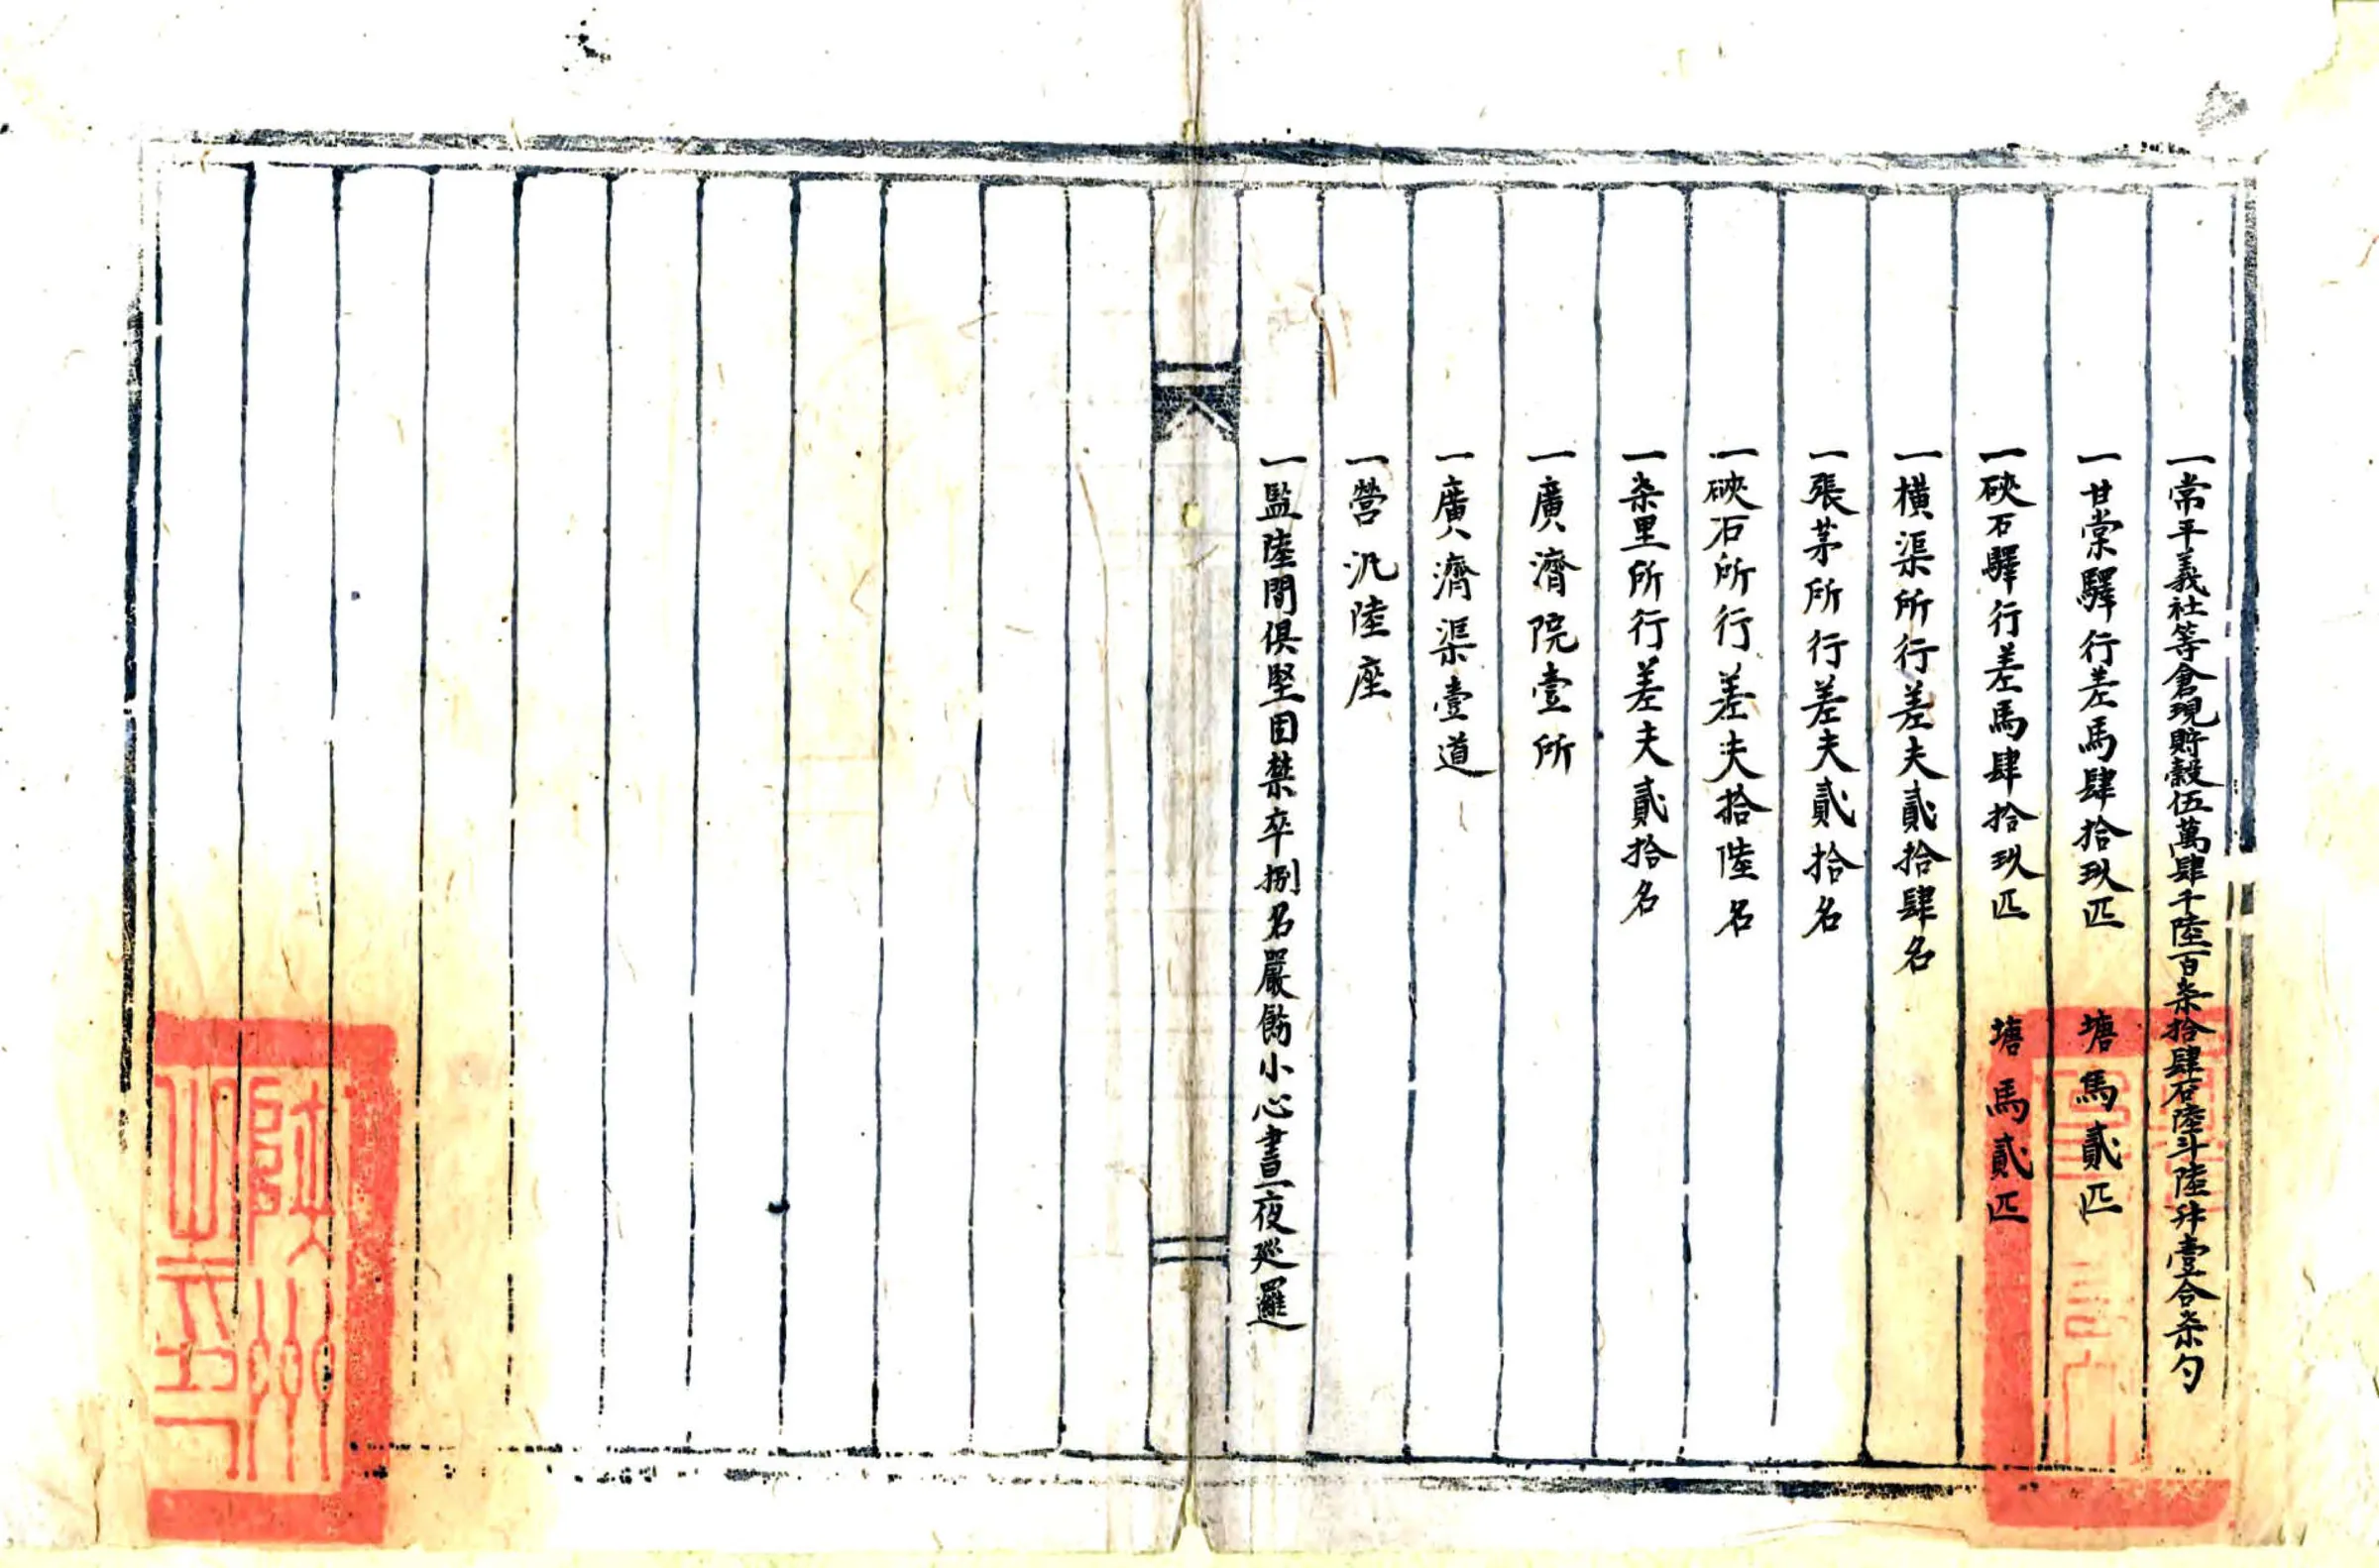 一常平義社等倉現貯穀伍萬肆千陸百柒拾肆石陸斗陸升壹合柒勺
一甘棠驛行差馬肆拾玖匹 塘馬貳匹
一硤石驛行差馬肆拾玖匹 塘馬貳匹
一橫渠所行差夫貳拾肆名
一張茅所行差夫貳拾名
一硤石所行差夫拾陸名
一柒里所行差夫貳拾名
一廣濟院壹所
一廣濟渠壹道
一營汛陸座
一監陸間俱堅固禁卒捌名嚴飭小心晝夜廵邏
陜州
之印